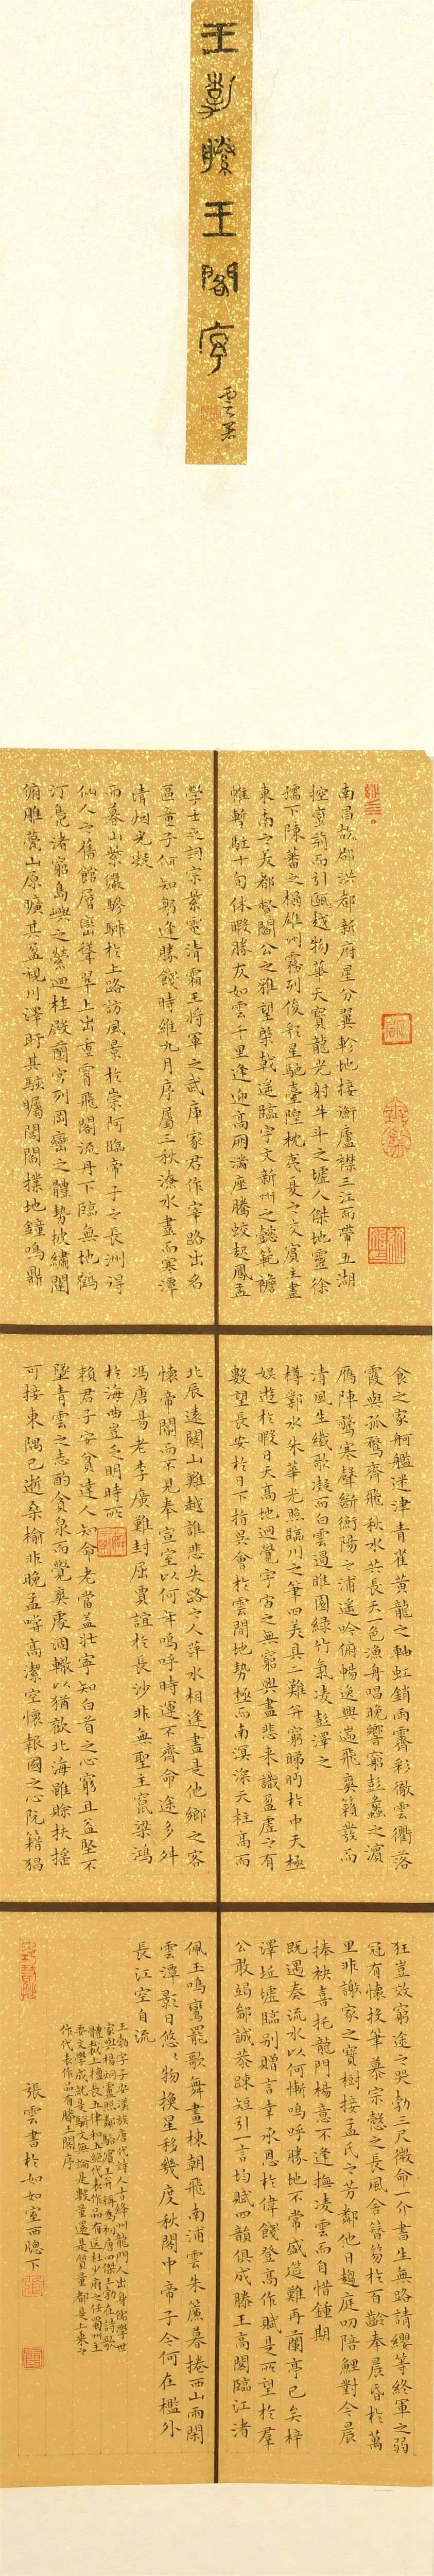 王勃滕王閣序
雲署
南昌故郡洪都新府星分翼軫地接衡廬襟三江而帶五湖
控蠻荊而引甌越物華天寶龍光射牛斗之墟人傑地靈徐
孺下陳蕃之榻雄州霧列俊彩星馳臺隍枕夷夏之交賓主盡
東南之美都督閻公之雅望棨戟遙臨宇文新州之懿範襜
帷暫駐十旬休暇勝友如雲千里逢迎高朋滿座騰蛟起鳳孟
學士之詞宗紫電清霜王將軍之武庫家君作宰路出名
區童子何知躬逢勝餞時維九月序屬三秋潦水盡而寒潭
清烟光凝
而暮山紫儼驂騑於上路訪風景於崇阿臨帝子之長洲得
仙人之舊館層巒聳翠上出重霄飛閣流丹下臨無地鶴
汀鳧渚窮島嶼之縈迴桂殿蘭宮列岡巒之體勢披繡闥
俯雕甍山原曠其盈視川澤盱其駭矚閭閻撲地鐘鳴鼎
食之家舸艦迷津青雀黃龍之軸虹銷雨霽彩徹雲衢落
霞與孤鶩齊飛秋水共長天一色漁舟唱晚響窮彭蠡之濱
雁陣驚寒聲斷衡陽之浦遙吟俯暢逸興遄飛爽籟發而
清風生纖歌凝而白雲遏睢園綠竹氣凌彭澤之
樽鄴水朱華光照臨川之筆四美具二難并窮睇眄於中天極
娛遊於暇日天高地迥覺宇宙之無窮興盡悲來識盈虛之有
數望長安於日下指吳會於雲間地勢極而南溟深天柱高而
北辰遠關山難越誰悲失路之人萍水相逢盡是他鄉之客
懷帝閽而不見奉宣室以何年嗚呼時運不齊命途多舛
馮唐易老李廣難封屈賈誼於長沙非無聖主竄梁鴻
於海曲豈乏明時所
賴君子安貧達人知命老當益壯寧知白首之心窮且益堅不
墜青雲之志酌貪泉而覺爽處涸轍以猶歡北海雖賒扶搖
可接東隅已逝桑榆非晚孟嘗高潔空懷報國之心阮籍猖
狂豈效窮途之哭勃三尺微命一介書生無路請纓等終軍之弱
冠有懷投筆慕宗愨之長風舍簪笏於百齡奉晨昏於萬
里非謝家之寶樹接孟氏之芳鄰他日趨庭叨陪鯉對今晨
捧袂喜托龍門楊意不逢撫凌雲而自惜鍾期
既遇奏流水以何慚嗚呼勝地不常盛筵難再蘭亭已矣梓
澤坵墟臨別贈言幸承恩於偉餞登高作賦是所望於羣
公敢竭鄙誠恭疎短引一言均賦四韻俱成滕王高閣臨江渚
佩玉鳴鸞罷歌舞畫棟朝飛南浦雲朱簾暮捲西山雨閑
雲潭影日悠々物換星移幾度秋閣中帝子今何在檻外
長江空自流
王勃字子安漢族唐代詩人古絳州龍門人出身儒學世
家與楊炯盧照鄰駱賓王并稱為初唐四傑王勃在詩歌
體裁上擅長五律和五絕代表作品有送杜少府之任蜀州主
要文學成就是駢文無論是數量還是質量都是上乘之
作代表作品有滕王閣序
張雲書於如如室西牕下